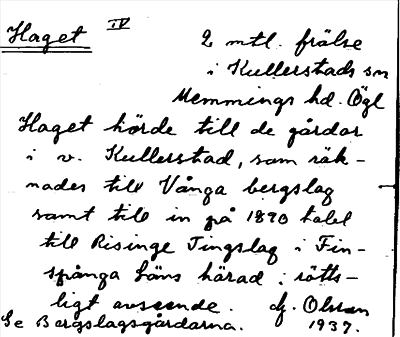 Haget IV
2 mtl. frälse
i Kullerstads sn
Memmings hd. Ögl
Haget hörde till de gårdar
i v. Kullerstad, som räk-
nades till Vånga bergslag
samt till in på 1890 talet
till Risinge Tingslag i Fin-
spånga läns härad i rätts-
ligt avseende. dj. Olsson
Se Bergslagsgårdarna. 1937.